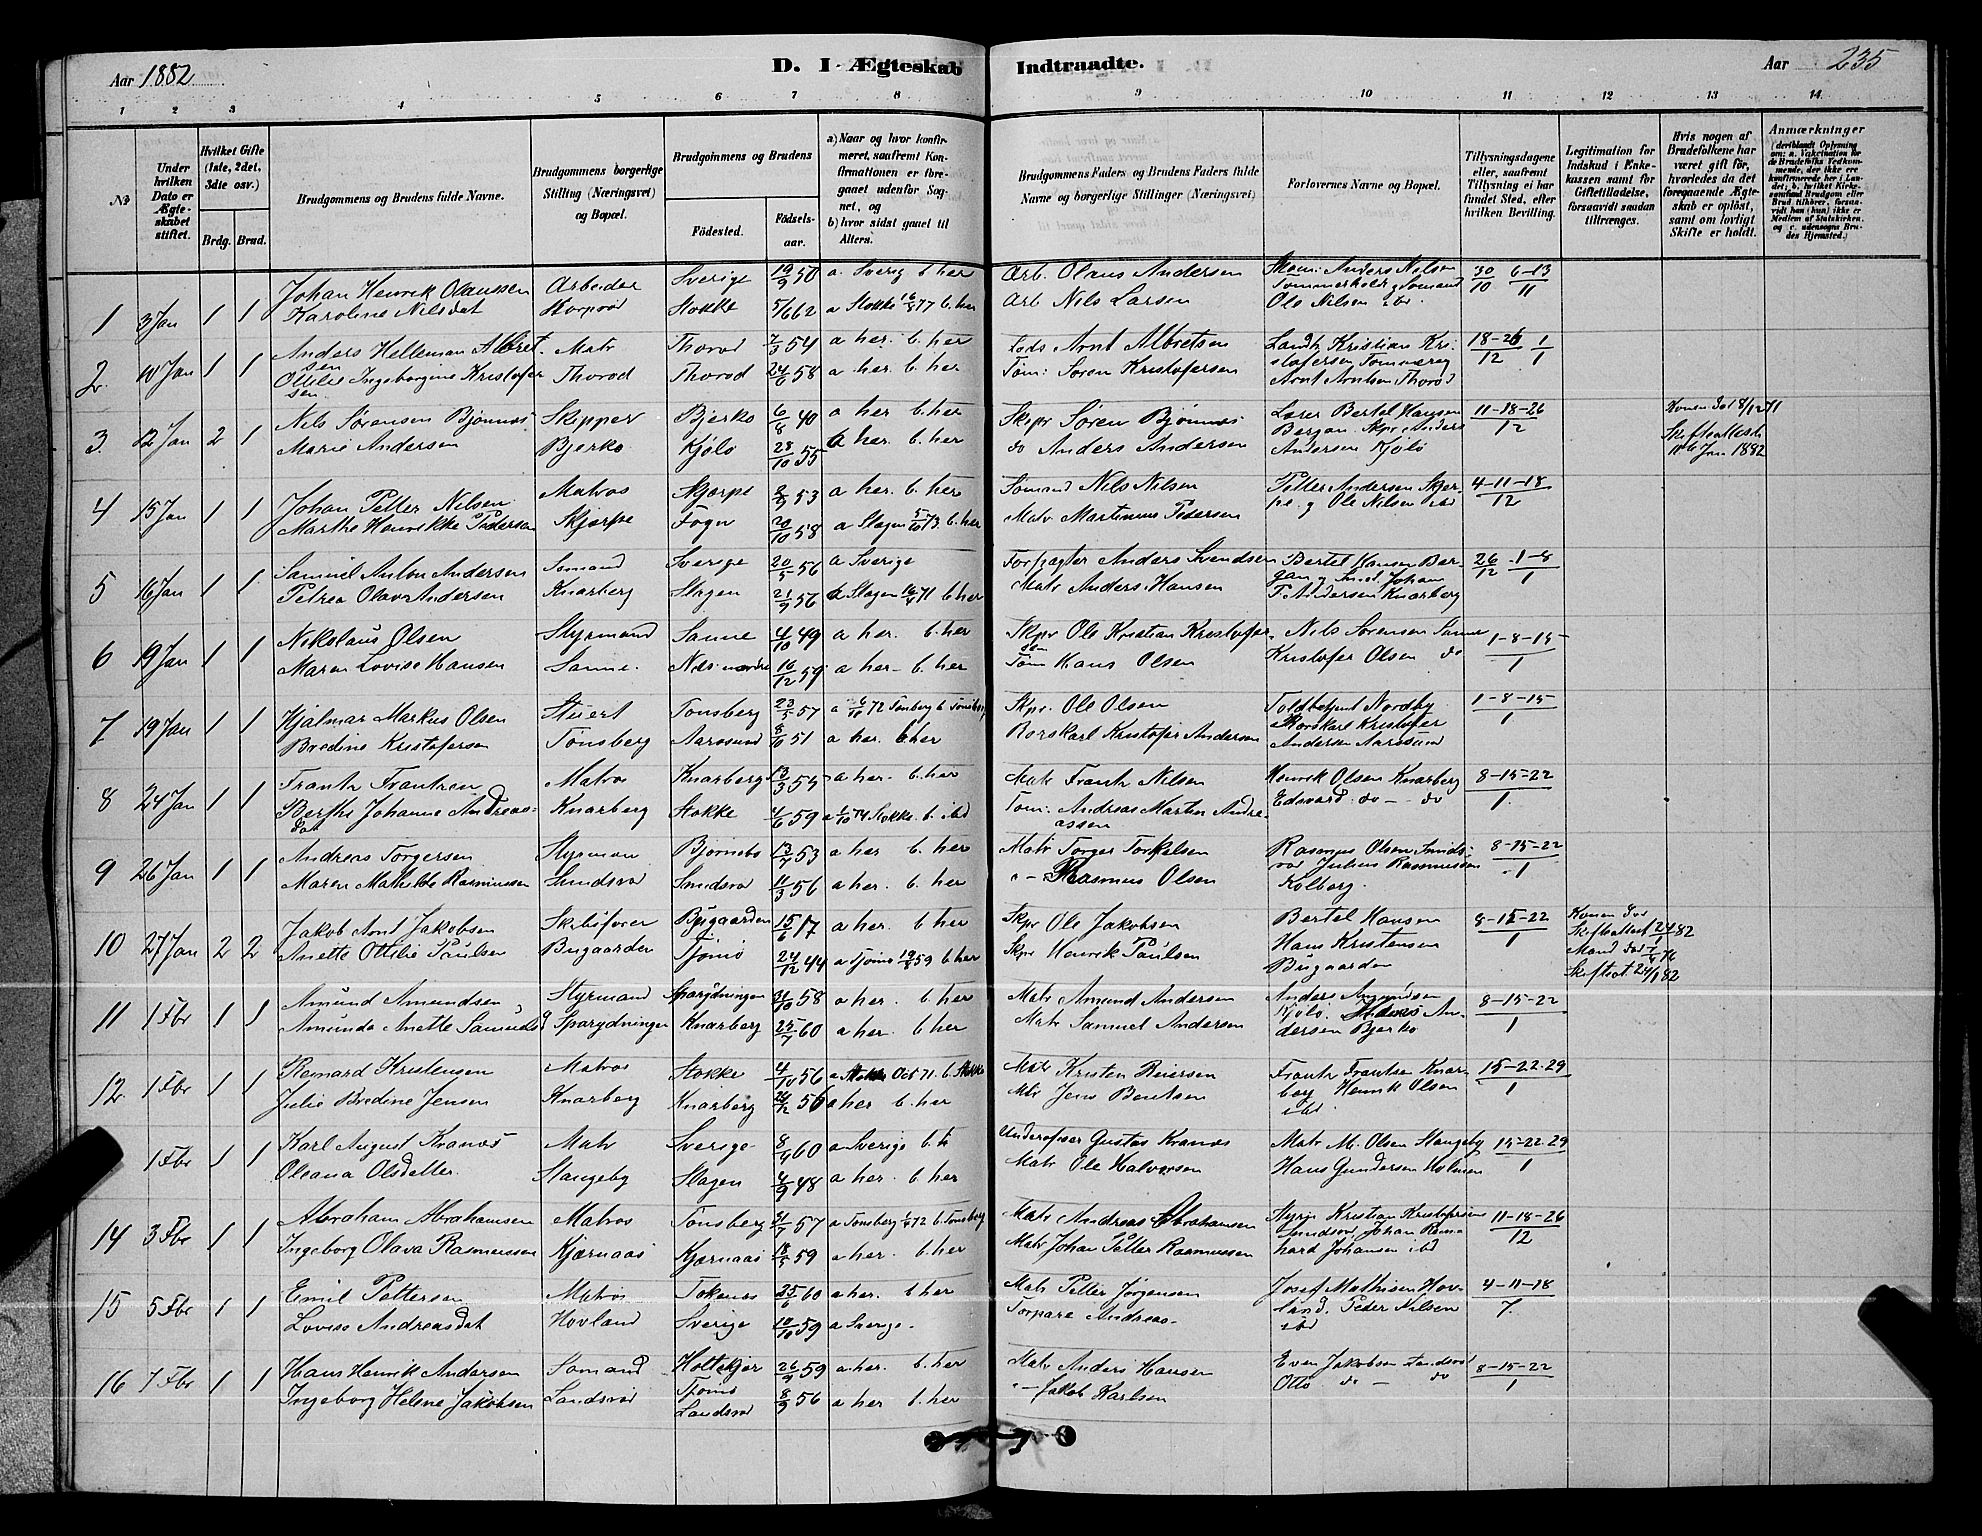 Aar 1882
D. I Ægteskab
Indtraadte.
Aar 235
1 2 3 4 5 6 7 8 9 10 11 12 13 14
No
Under hvilken Dato er Ægteskabet stiftet.
Hvilket Gifte (1ste, 2det, 3die osv.)
Brdg. Brud.
Brudgommens og Brudens fulde Navne.
Brudgommens borgerlige Stilling (Næringsvei) og Bopæl.
Brudgommens og Brudens
Födested. Födsels-aar.
a) Naar og hvor konfirmeret, saafremt Konfirmationen er foregaaet udenfor Sognet, og
b) hvor sidst gaaet til Alters.
Brudgommens Faders og Brudens Faders fulde Navne og borgerlige Stillinger (Næringsvei)
Forlovernes Navne og Bopæl.
Tillysningsdagene eller, saafremt Tillysning ei har fundet Sted, efter hvilken Bevilling.
Legitimation for Indskud i Enkekassen samt for Giftetilladelse, forsaavidt saadan tiltrænges.
Hvis nogen af Brudefolkene har været gift för, hvorledes da det foregaaende Ægteskab er oplöst, samt om lovligt Skifte er holdt.
Anmærkninger
1 3 Jan 1 1 Johan Henrik Olaussen Arbeider Sverige 19/9 50 a. Sverig b. her Arb. Olaus Andersen Anders Nilsen 30/10 6-13/11
Karoline Nilsdat Stokke 5/6 62 a Stokke 77 b. her Arb Nils Larsen Ole Nilsen ibd
2. 10 Jan 1 1 Anders Helleman Albret- Matr Thorod 7/3 54 a her. b. her Lods Arnt Albretsen Landh Kristian Kri- 18-26/12 1/1
sen
Ottilie Ingeborgine Kristofer Thorod Thorod 24/6 58 a her. b. her Töm: Søren Kristofersen stofersen
sen Arnt Arntsen Thorod
3. 12 Jan 2 1 Nils Sørensen Bjönnes Skipper Bjerkø 6/8 40 a her b. her Skpr Søren Bjönnes Lærer Bertel Hansen 11-18-26/12 Konen död 8/12 71
Marie Andersen Bjerkø Kjölö 28/10 55 a her. b. her do Anders Andersen Bergan. Skpr Anders Skifteattest
Andersen Kjölö Jan 1882
4 15 Jan 1 1 Johan Petter Nilsen Matros Skjærpe 2/9 53 a her. b. her Sømand Nils Nilsen Petter Andersen Skjer- 4-11-18/12
Marthe Henrikke Pedersen Skjærpe 20/10 58 a Slagen 5/10 73 b. her Matr Martinius Pedersen pe. g Ole Nilsen ibd
5 16 Jan 1 1 Samuel Anton Andersen Sømand Sverige 20/5 56 a Sverige Forpagter Anders Svendsen Bertel Hansen Ber- 26/12 1-8/1
Petrea Olava Andersen Knarberg Slagen 21/9 56 Slagen 71 b. her Matr Anders Hansen gan g Johan
Andersen Knarberg
6 19 Jan 1 1 Nikolaus Olsen Styrmand Sanne 4/10 49 a her. b. her Skpr Ole Kristian Kristofer- Nils Sørensen Sanne 1-8-15/1
sen
Maren Lovise Hansen Sanne. Næs nordre 16/12 59 a her- b. her Töm Hans Olsen Kristofer Olsen do
7 19 Jan 1 1 Hjalmar Markus Olsen Stuert Tønsberg 23/5 57 a 72 Tønsberg b. Tønsberg Skpr. Ole Olsen Toldbetjent Nordby 1-8-15/1
Bredine Kristofersen Tønsberg Aarøsund 51 a her. b her Borskarl Kristofer Andersen Borskarl Kristofer
Andersen Aarøsund
8 24 Jan 1 1 Frantz Frantzen Matros Knarberg 13/3 55 a her. b. her Matr Frantz Nilsen Henrik Olsen Knarberg 8-15-22/1.
Berthe Johanne Andreas- Knarberg Stokke 4/6 59 a 74 Stokke. b. ibd Töm: Andreas Marten Andre- Edvard do - do
dat assen
9 26 Jan 1 1 Andreas Torgersen Styrman 13/7 53 a her b. her Matr Torger Torkelsen Rasmus Olsen Smids- 8-15-22/1
Maren Mathilde Rasmussen Smidsrod Smidsrod 11/3 56 a her. b. her "- Rasmus Olsen rod Julius Rasmussen
Kolberg.
10 27 Jan 2 2 Jakob Arnt Jakobsen Skibsfører Bugaarden 15/6 17 a her. b her Skpr Ole Jakobsen Bertel Hansen 8-15-22/1 Konen död
Anette Ottilie Paulsen Bugaarden Tjömö 24/12 44 a Tjömö 59 b her Skpr Henrik Paulsen Hans Kristensen Skifteattest 24/1 82
Bugaarden Mand död 76
Skifteat. 24/1 82
11 1 Fbr 1 1 Amund Amundsen Styrmand Sparydningen 58 a her. b her Matr Amund Andersen Anders Amundsen 8-15-22/1
Amunda Anette Samuelsd Sparydningen Knarberg 25/7 60 a her. b. her Matr Samuel Andersen Kjölö. An-
dersen Bjerkø
12. 1 Fbr 1 1 Reinard Kristensen Matros Stokke 4/10 56 a Stokke Oct 71. b. Stokke Matr Kristen Reiersen Frantz Frantzen Knar- 15-22-29/1
Julie Bredine Jensen Knarberg Knarberg 56 a her b. her Mtr Jens Bentsen berg Henrik Olsen
ibd
1 Fbr 1 1 Karl August Kranæs Matr Sverige 60 a Sverige b. h Underofiser Gustav Kranæs Matr M. Olsen Stangeby 15-22-29/1
Oleana Olsdatter. Stangeby Slagen 4/9 48 a her. b. her Matr Ole Halvorsen Hans Gundersen Holmen
14 3 Fbr 1 1 Abraham Abrahamsen Matros Tønsberg 57 a Tønsberg 72 b. Tønsberg Matr Andreas Abrahamsen Styrm Kristian Kristofersen 11-18-26/12
Ingeborg Olava Rasmussen Kjærnaas Kjærnaas 18/5 59 a her. b. her Matr Johan Petter Rasmussen Smidsrod, Johan Rein-
hard Johansen ibd
15 5 Fbr 1 1 Emil Pettersen Matros Tokenes 25/6 60 a her. b her Matr Petter Jörgensen Josef Mathisen Hov- 4-11-18/7.
Lovise Andreasdat Hovland Sverige 10/10 59 a Sverge- Torpare Andreas- land. Peder Nilsen
ibd
16 7 Fbr 1 1 Hans Henrik Andersen Sømand Holtekjær 26/9 59 a her. b. her Matr Anders Hansen Even Jakobsen Landsrod 8-15-22/1
Ingeborg Helene Jakobsen Landsrod Tjömö 8/9 56 a her b. her "- Jakob Karlsen Otto do - do
Landsrod